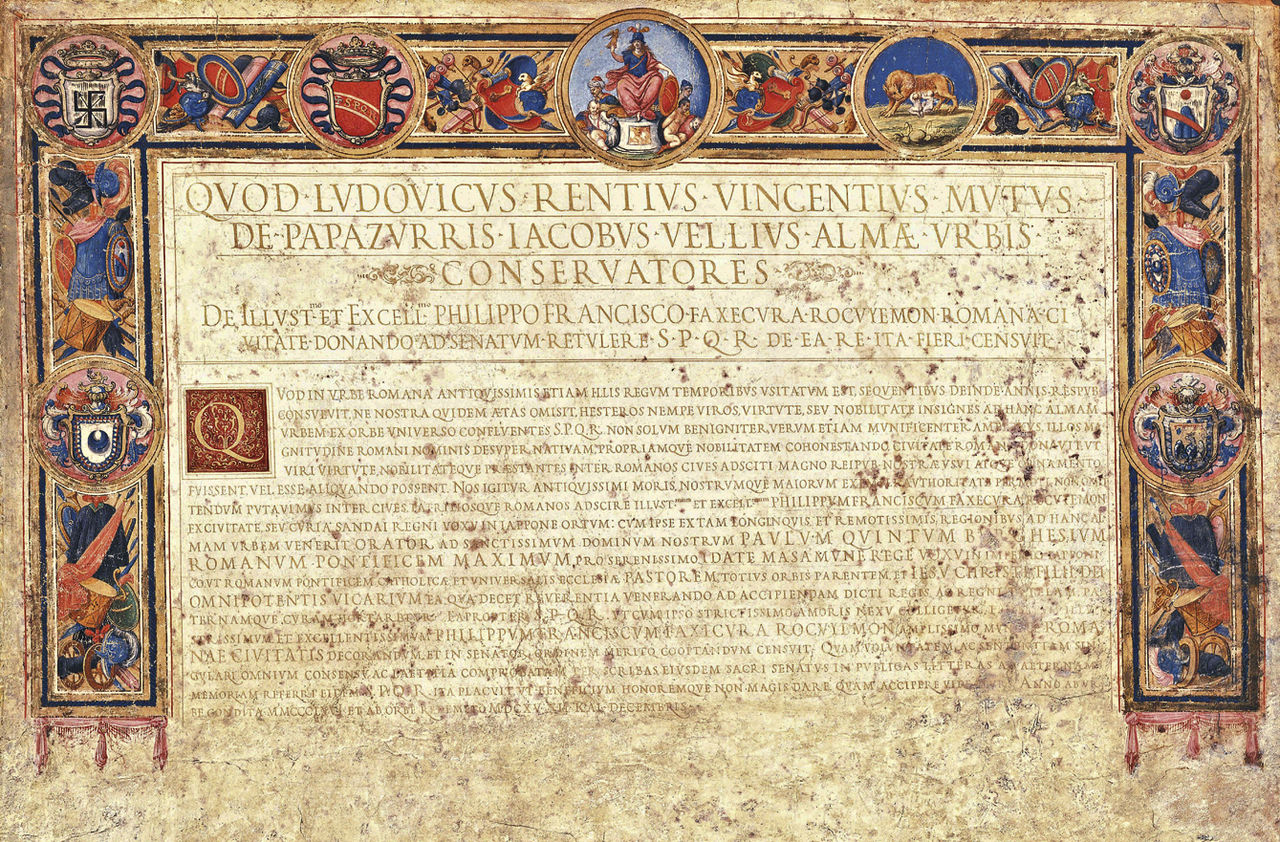 S P Q R
QVOD·LVDOVICVS·RENTIVS·VINCENTIVS·MVTVS·
DE·PAPAZVRRIS·IACOBVS·VELLIVS·ALMÆ·VRBIS·
CONSERVATORES
DE ILLVST.mo ET EXCELL.mo PHILIPPO FRANCISCO·FAXECVRA·ROCVYEMON·ROMANA·CI
VITATE·DONANDO·AD·SENATVM·RETVLERE·S·P·Q·R· DE·EA·RE·ITA·FIERI·CENSVIT
QVOD IN VRBE ROMANA ANTIQVISSIMIS ETIAM ILLIS REGVM TEMPORIBVS VSITATVM EST, SEQVENTIBVS DEINDE ANNIS
CONSVEVIT, NE NOSTRA QVIDEM ÆTAS OMISIT, NEMPE VIROS, VIRTVTE, SEV NOBILITATE INSIGNES AD HANC ALMAM
VRBEM EX ORBE VNIVERSO CONFLVENTES S.P.Q.R. NON SOLVM BENIGNITER, VERVM ETIAM MVNIFICENTER ILLOS MA
GNITVDINE ROMANI NOMINIS DESVPER NATIVAM, PROPRIAMQVE NOBILITATEM COHONESTANDO, CIVITATE VT
VIRI VIRTVTE, NOBILITATEQVE PRÆSTANTES INTER ROMANOS CIVES ADSCITI MAGNO REIPVB NOSTRÆ VSVI ATQVE ORNAMENTO
FVISSENT, VEL ESSE ALIQVANDO POSSENT. NOS IGITVR ANTIQVISSIMI MORIS, NOSTRVMQVE MAIORVM AVTHORITATE
TENDVM PVTAVIMVS INTER CIVES, PATRITIOSQVE ROMANOS ADSCIRE ILLVST. ET EXCELL. PHILIPPVM FRANCISCVM FAXECVRA ROCVYEMON
EX CIVITATE, SEV CVRIA SANDAI REGNI VOXV IN IAPPONE ORTVM: CVM IPSE EX TAM LONGINQVIS, ET REMOTISSIMIS, REGIONIBVS AD HANC AL
MAM VRBEM VENERIT ORATOR, AD SANCTISSIMVM DOMINVM NOSTRVM PAVLVM QVINTVM BVRGHESIVM
ROMANVM PONTIFICEM MAXIMVM, PRO SERENISSIMO IDATE MASAMVNE REGE VOXV IN IMPERIO IAPPONIC
ROMANVM PONTIFICEM CATHOLICÆ, ET VNIVERSALIS ECCLESIÆ PASTOREM, TOTIVS ORBIS PARENTEM, ET IESV CHRISTI FILII DEI
OMNIPOTENTIS VICARIVM EA QVA DECET REVERENTIA VENERANDO AD ACCIPIENDAM DICTI REGIS, AC REGNI TVTELAM, PA
TERNAMQVE CVRAM HORTARETVR. EAPROPTER S.P.Q.R. VT CVM IPSO STRICTISSIMO AMORIS NEXV COLLIGETVR,
ET EXCELLENTISSIMVM PHILIPPVM FRANCISCVM FAXICVRA ROCVYEMON AMPLISSIMO ROMA
NAE CIVITATIS DECORANDVM, ET IN SENATORVM ORDINEM MERITO COOPTANDVM CENSVIT. QVAM VOLVNTATEM
GVLARI OMNIVM CONSENSV, AC LÆTITIA COMPROBATAM PER SCRIBAS EIVSDEM SACRI SENATVS IN PVBLICAS LITTERAS AD ÆTERNAM
MEMORIAM REFERRI S.P.Q.R. ITA PLACVIT VT BENEFICIVM HONOREMQVE NON MAGIS DARE QVAM ACCIPERE ANNO AB VR
BE CONDITA ET AB ORBE REDEMPTO MDCXV XII KAL DECEMBRIS